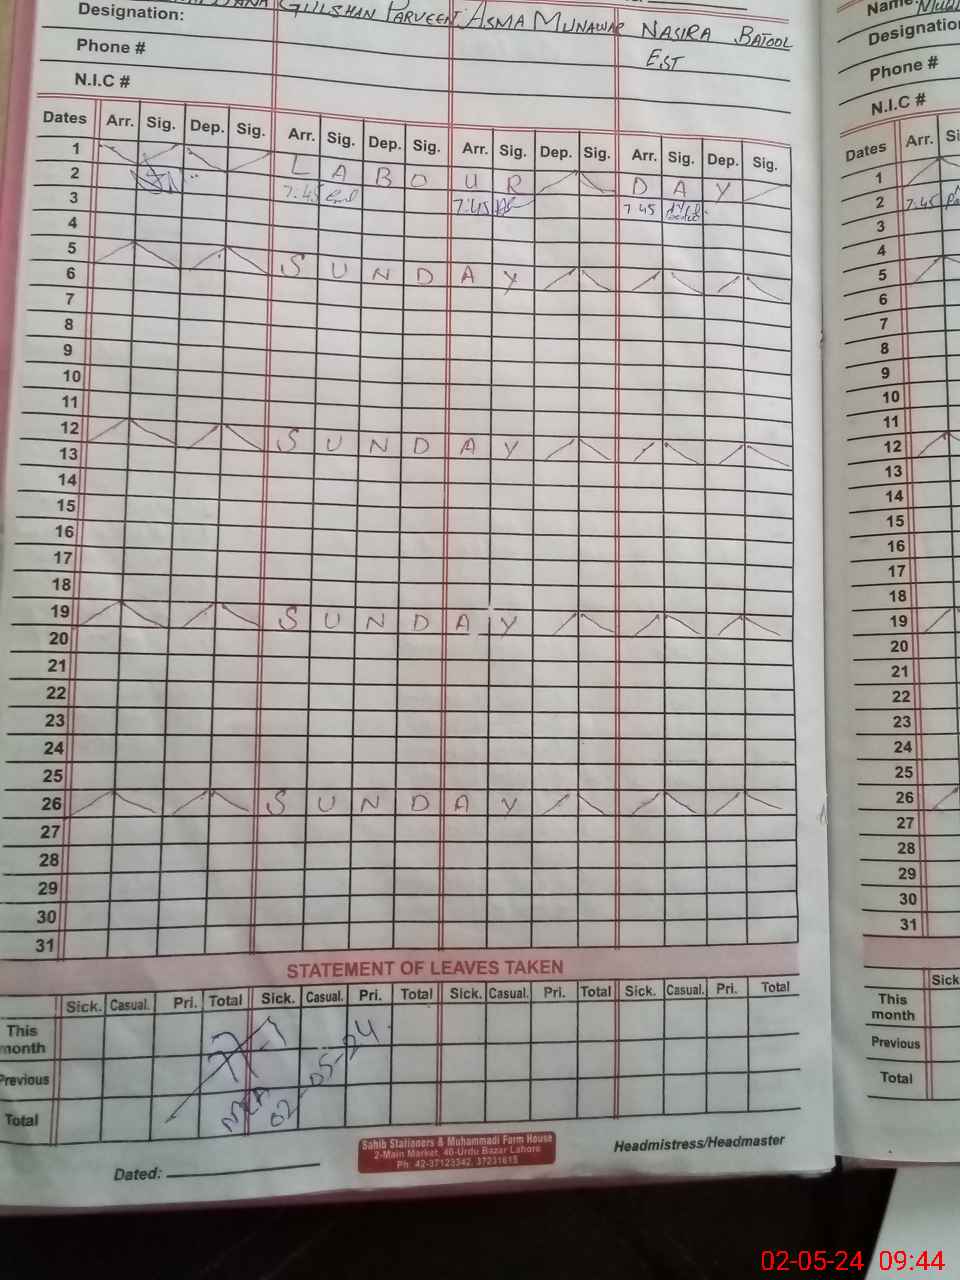 GULSHAN PARVEEN ASMA MUNAWAR NASIRA BATOOL
EST
Designation:
Phone #
N.I.C #
Dates Arr. Sig. Dep. Sig. Arr. Sig. Dep. Sig. Arr. Sig. Dep. Sig. Arr. Sig. Dep. Sig.
1 LABOUR DAY
2 7:45 7:45 7:45
3
4
5 SUNDAY
6
7
8
9
10
11
12 SUNDAY
13
14
15
16
17
18
19 SUNDAY
20
21
22
23
24
25
26 SUNDAY
27
28
29
30
31
STATEMENT OF LEAVES TAKEN
Sick. Casual. Pri. Total Sick. Casual. Pri. Total Sick. Casual. Pri. Total Sick. Casual. Pri. Total
This month
Previous
Total
02-05-24
Dated:
Sahib Stationers & Muhammadi Form House
2-Main Market, 40-Urdu Bazar Lahore
Ph: 42-37123342, 37231615
Headmistress/Headmaster
Name
Designation
Phone #
N.I.C #
Dates Arr.
1
2 7:45
3
4
5
6
7
8
9
10
11
12
13
14
15
16
17
18
19
20
21
22
23
24
25
26
27
28
29
30
31
Sick
This month
Previous
Total
02-05-24 09:44